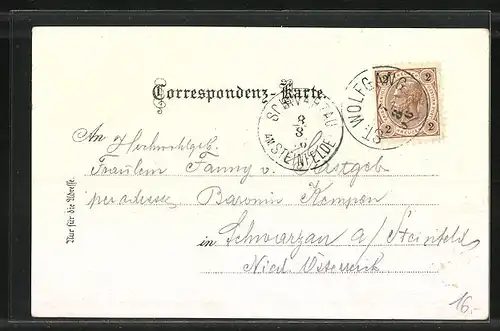 Correspondenz-Karte.
SCHWARZAU
AM STEINFELDE
8
8
ST. WOLFGANG
2
2
2
An Hochwohlgeb.
Fräulein Fanny v.
per adresse Baronin Kempen
in Schwarzau a/Steinfeld
Nied. Österreich
Nur für die Adresse.
16.-